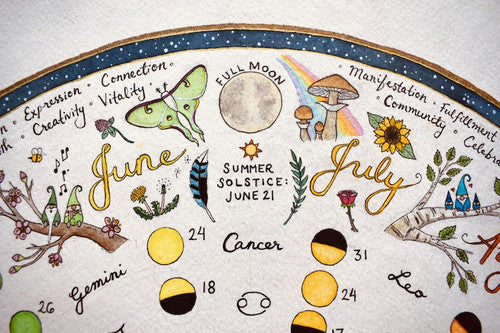 Expression · Connection ·
Creativity · Vitality ·
FULL MOON
· Manifestation · Fulfillment
Community ·
June
SUMMER
SOLSTICE:
JUNE 21
July
Gemini
24
18
26
Cancer
31
24
17
Leo